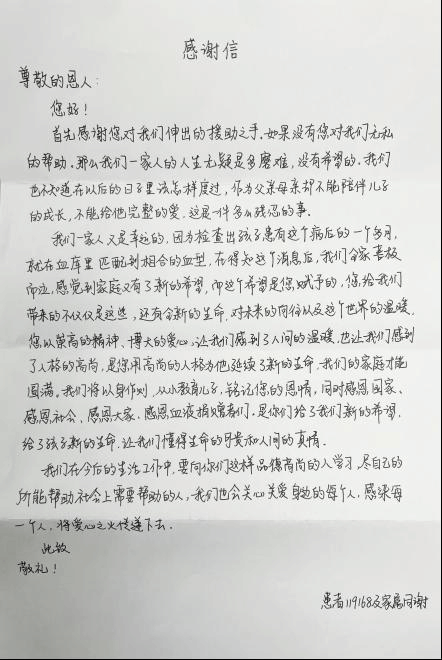 感谢信
尊敬的恩人：
您好！
首先感谢您对我们伸出的援助之手。如果没有您对我们无私
的帮助。那么我们一家人的人生无疑是多磨难，没有希望的。我们
也不知道在以后的日子里该怎样度过，作为父亲母亲却不能陪伴儿子
的成长，不能给他完整的爱，这是一件多么残忍的事。
我们一家人又是幸运的，因为检查出孩子患有这个病后的一个多月，
就在血库里匹配到相合的血型，在得知这个消息后，我们全家喜极
而泣，感觉到家庭又有了新的希望，而这个希望是您赋予的，您给我们
带来的不仅仅是这些，还有全新的生命，对未来的向往以及这个世界的温暖。
您以崇高的精神、博大的爱心，让我们感到了人间的温暖，也让我们感到
了人格的高尚，是您用高尚的人格为他延续了新的生命，我们的家庭才能
圆满。我们将以身作则，从小教育儿子，铭记您的恩情，同时感恩国家、
感恩社会、感恩大家、感恩血液捐赠者们。是你们给了我们新的希望，
给了孩子新的生命，让我们懂得生命的可贵和人间的真情。
我们在今后的生活工作中，要向你们这样品德高尚的人学习，尽自己的
所能帮助社会上需要帮助的人，我们也会关心关爱身边的每个人，感染每
一个人，将爱心之火传递下去。
此致
敬礼！
患者119168及家属同谢